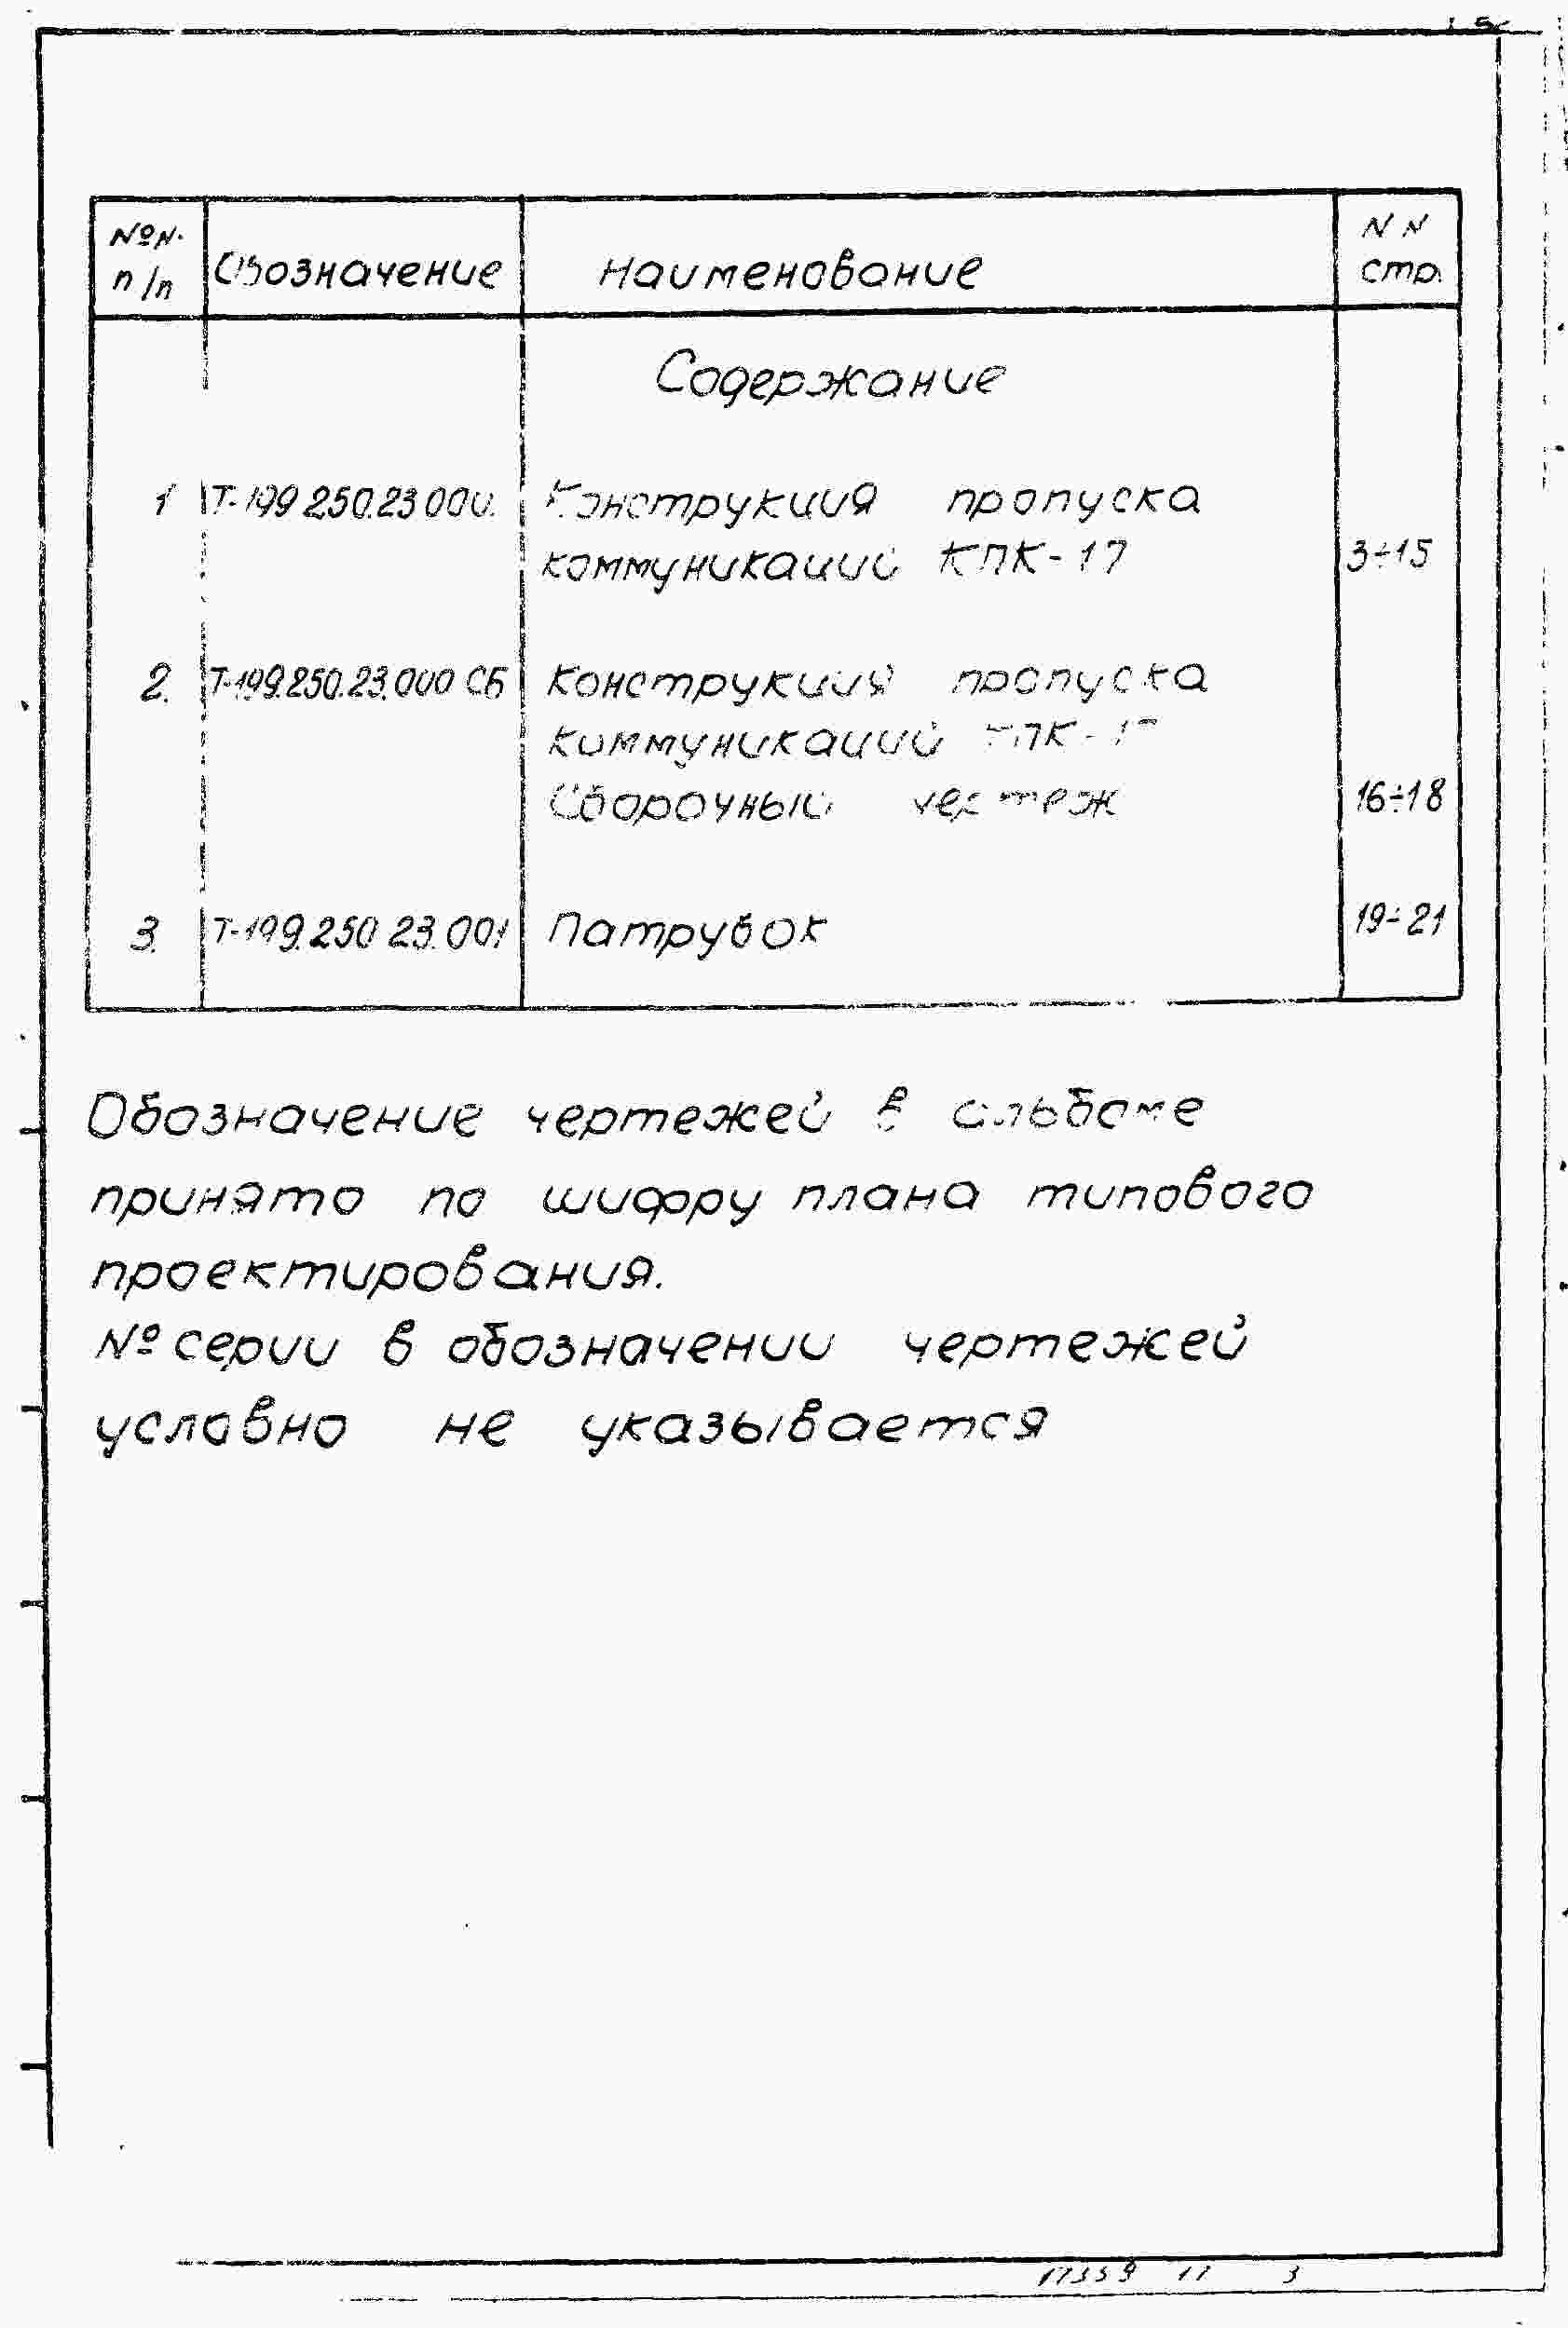 №№ п/п Обозначение Наименование NN стр.
Содержание
1 Т-199.250.23.000. Конструкция пропуска
коммуникаций КПК-17 3÷15
2. Т-199.250.23.000 СБ Конструкция пропуска
коммуникаций КПК-17
Сборочный чертеж 16÷18
3. Т-199.250.23.001 Патрубок 19÷21
Обозначение чертежей в альбоме
принято по шифру плана типового
проектирования.
№ серии в обозначении чертежей
условно не указывается
17359 17 3